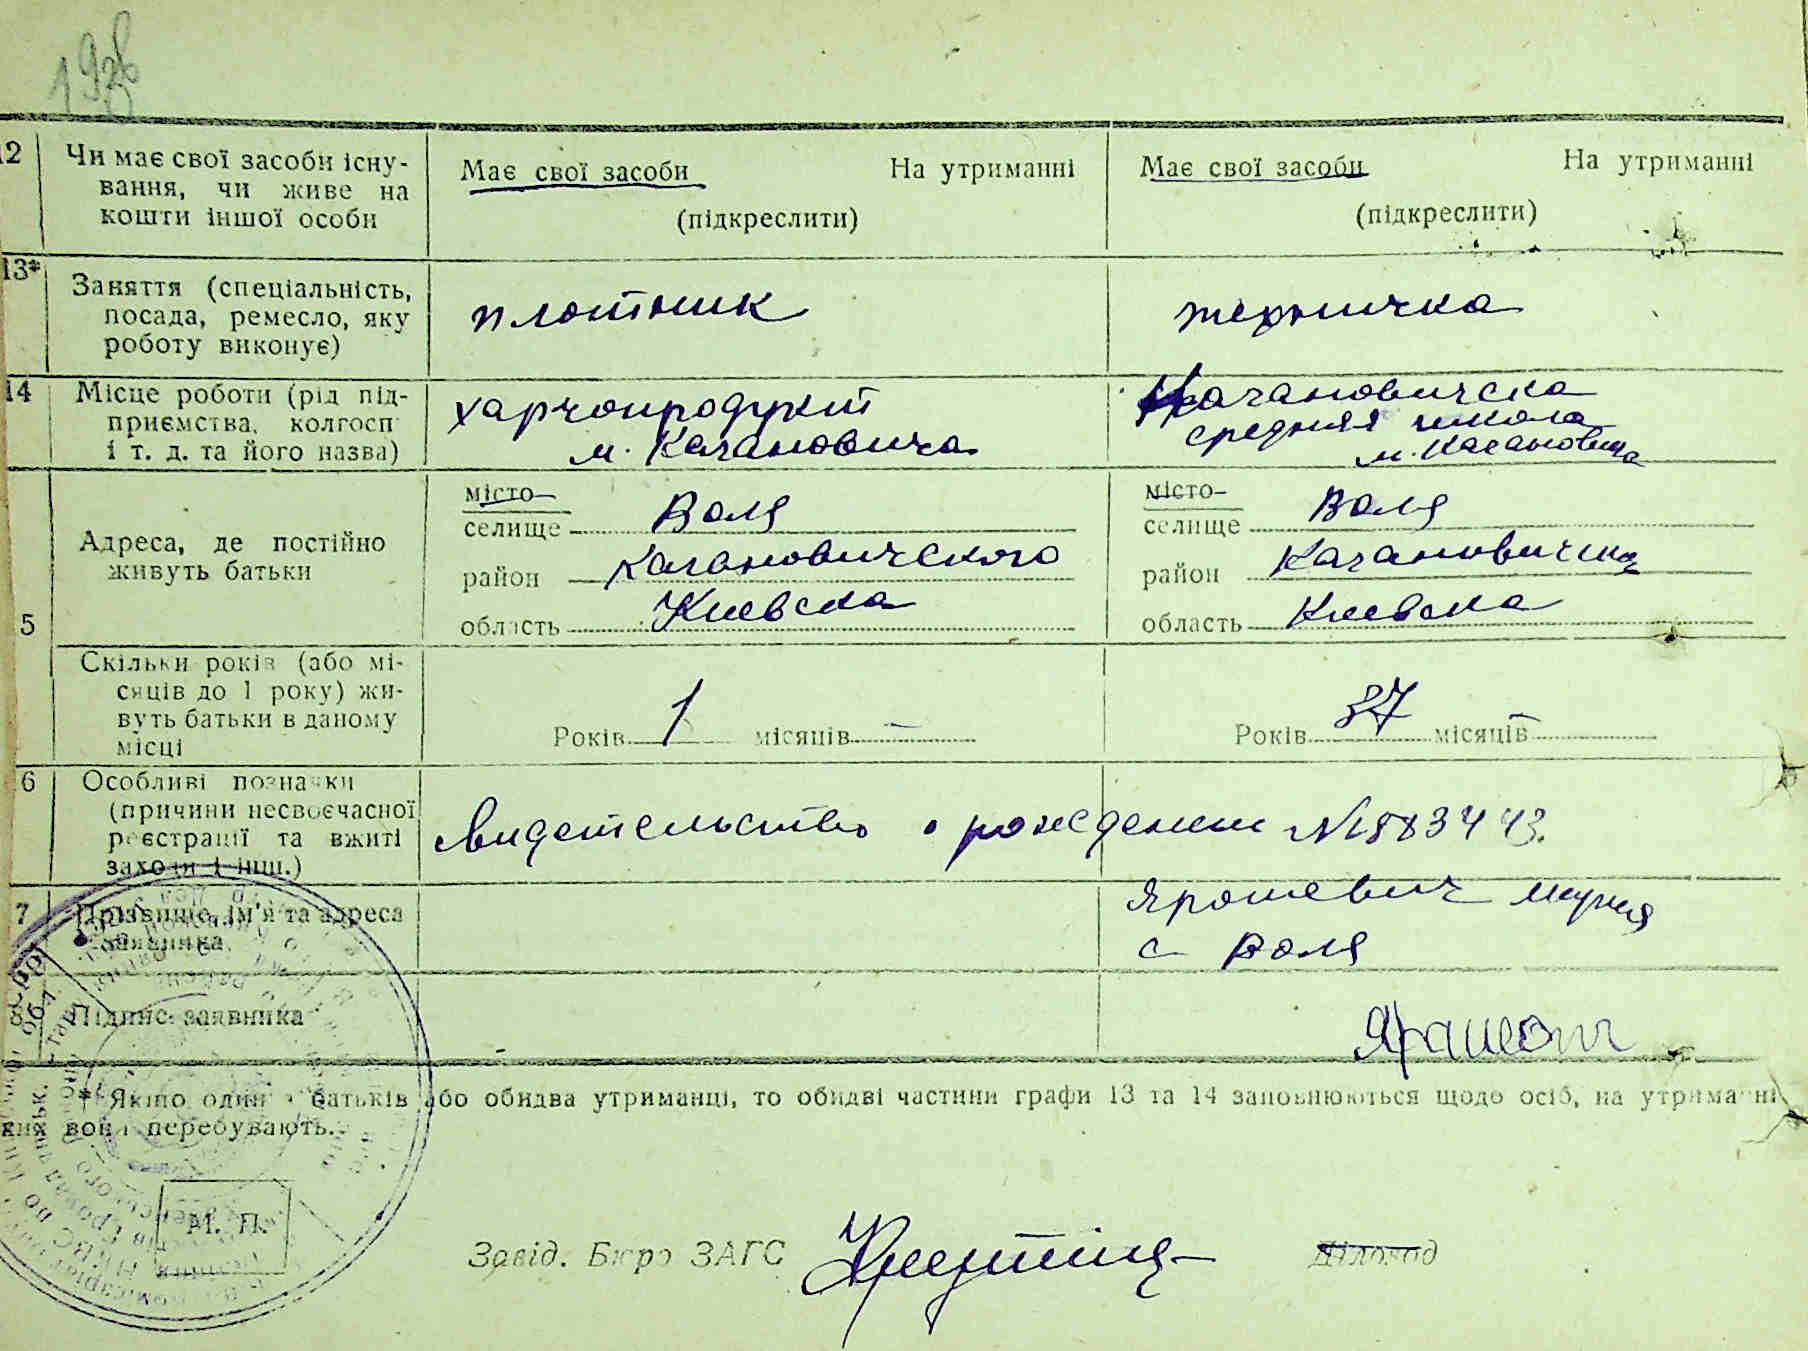 12 Чи має свої засоби існу- Має свої засоби На утриманні Має свої засоби На утриманні
вання, чи живе на
кошти іншої особи (підкреслити) (підкреслити)
13* Заняття (спеціальність,
посада, ремесло, яку плотник
роботу виконує)
14 Місце роботи (рід під- харчопродукт Качановичска
приємства, колгосп средняя школа
і т. д. та його назва) м. Качановича м. Качановича
місто- місто-
селище Воля селище Воля
Адреса, де постійно
живуть батьки район Качановичского район
5 область Киевска область Киевска
Скільки років (або мі-
сяців до 1 року) жи-
вуть батьки в даному Років 1 місяців – Років 37 місяців –
місці
6 Особливі позначки
(причини несвоєчасної
реєстрації та вжиті видетельство о рождении №
заходи і інш.)
7 Прізвище, ім'я та адреса Ярошевич
заявника с Воля
8 Підпис заявника
* Якщо один з батьків або обидва утриманці, то обидві частини графи 13 та 14 заповнюються щодо осіб, на утриманні
яких вони перебувають.
М. П.
Завід. Бюро ЗАГС Діловод